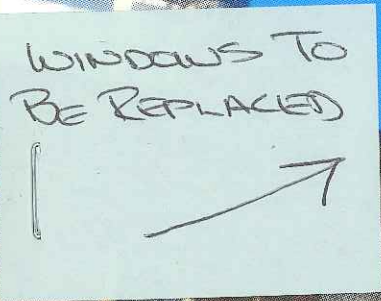 WINDOWS TO
BE REPLACED